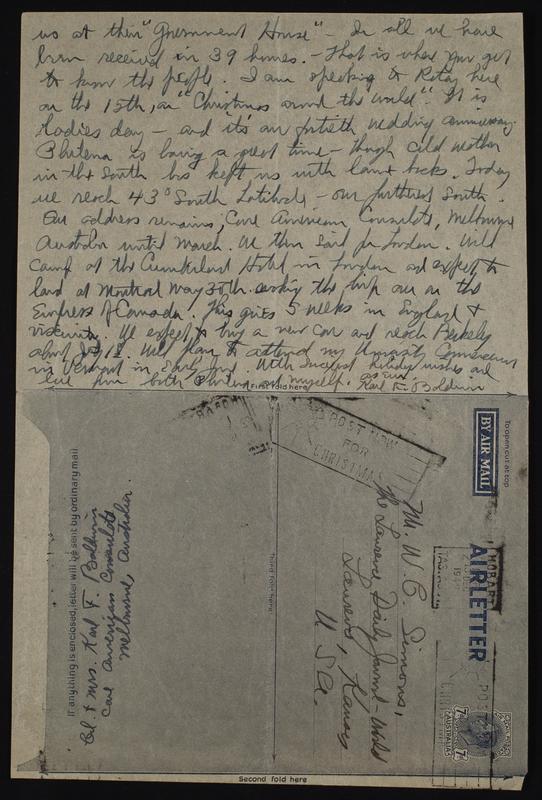 us at their "Government House" - In all we have
been received in 39 homes. - That is where you get
to know the people. I am speaking to Rotary here
on the 15th, on "Christmas around the world". It is
Ladies day - and it's our fortieth wedding anniversary.
is having a great time - though cold weather
in the South has kept us with
Today
we reach 43° South Latitude - our furthest South.
Our address remains, Care American Consulate, Melbourne
Australia until March. We then sail for London. Will
camp at the Cumberland Hotel in London and expect to
land at Montreal May 30th. the trip on the
Empress of Canada. This gives 5 weeks in England &
vicinity. We expect to buy a new car and reach Berkeley
about July 1st. Will plan to attend my University
in Vermont in Early June. With holiday wishes and
love from both and myself. as ever,
Karl F. Baldwin
First fold here
If anything is enclosed, letter will be sent by ordinary mail
Col. & Mrs. Karl F. Baldwin
Care American Consulate
Melbourne, Australia.
Third fold here
HOBART
POST NOW
FOR
CHRISTMAS
Mr. W. C. Simons,
The Lawrence Daily Journal-World
Lawrence, Kansas
U.S.A.
To open cut at top
BY AIR MAIL
AIRLETTER
HOBART
POST
AUSTRALIA
7
Second fold here